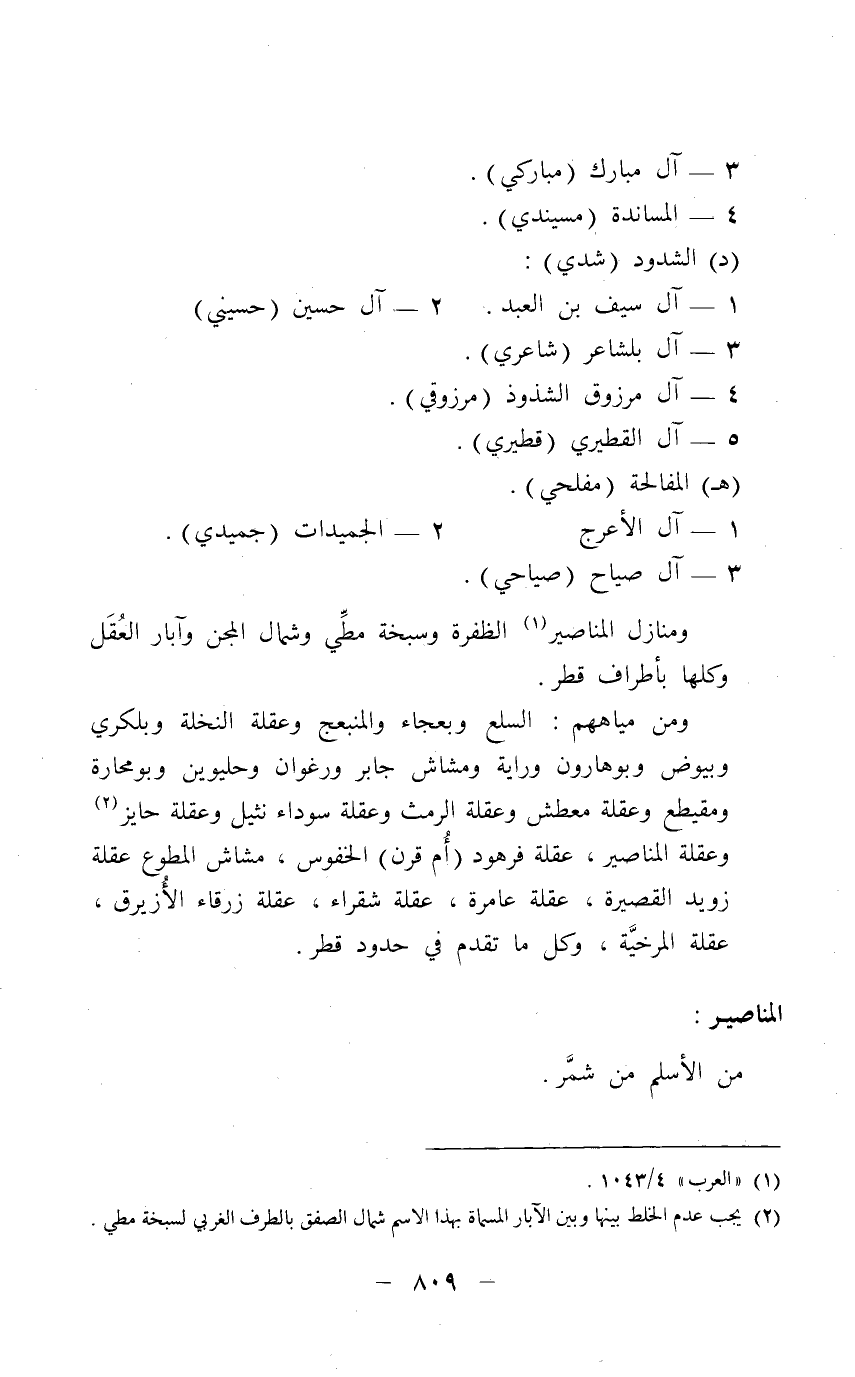 ٣ — آل مبارك (مباركي) .
٤ — المساندة (مسيندي) .
(د) الشدود (شدي) :
١ — آل سيف بن العبد . ٢ — آل حسين (حسيني)
٣ — آل بلشاعر (شاعري) .
٤ — آل مرزوق الشذوذ (مرزوقي) .
٥ — آل القطيري (قطيري) .
(هـ) المفالحة (مفلحي) .
١ — آل الأعرج ٢ — الجميدات (جميدي) .
٣ — آل صياح (صياحي) .
ومنازل المناصير(١) الظفرة وسبخة مطِّي وشمال المجن وآبار العُقَل
وكلها بأطراف قطر .
ومن مياههم : السلع وبعجاء والمنبعج وعقلة النخلة وبلكري
وبيوض وبوهارون وراية ومشاش جابر ورغوان وحليوين وبومحارة
ومقيطع وعقلة معطش وعقلة الرمث وعقلة سوداء نثيل وعقلة حايز(٢)
وعقلة المناصير ، عقلة فرهود (أُم قرن) الخفوس ، مشاش المطوع عقلة
زويد القصيرة ، عقلة عامرة ، عقلة شقراء ، عقلة زرقاء الأُزيرق ،
عقلة المرخيَّة ، وكل ما تقدم في حدود قطر .
المناصير :
من الأسلم من شمَّر .
(١) «العرب» ١٠٤٣/٤ .
(٢) يجب عدم الخلط بينها وبين الآبار المسماة بهذا الاسم شمال الصفق بالطرف الغربي لسبخة مطي .
— ٨٠٩ —